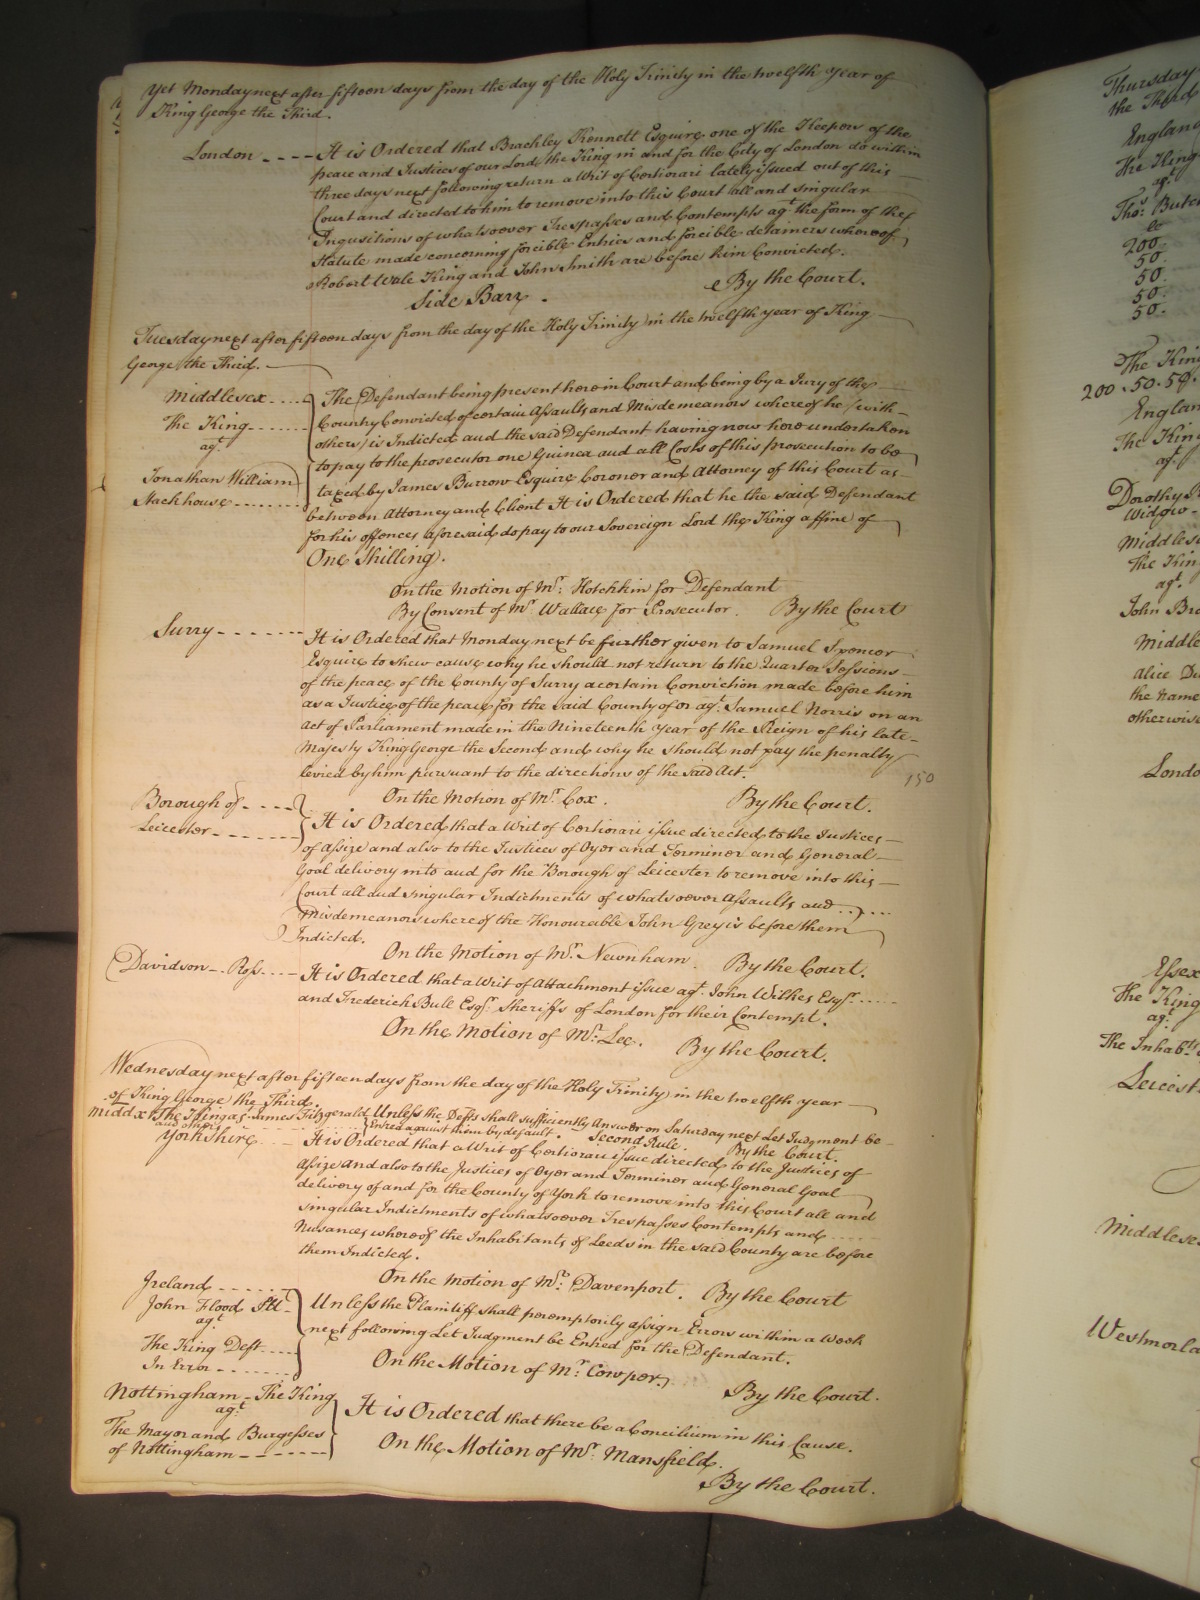 Yet Monday next after fifteen days from the day of the Holy Trinity in the twelfth year of
King George the Third.
London It is Ordered that Brackley Kennett Esquire one of the Keepers of the
peace and Justices of our Lord the King in and for the City of London do within
three days next following return a Writ of Certiorari lately issued out of this
Court and directed to him to remove into this Court all and singular
Inquisitions of whatsoever Trespasses and Contempts agt. the form of the
Statute made concerning forcible Entries and forcible detainers whereof
Robert Wale King and John Smith are before him Convicted.
Side Barr. By the Court.
Tuesday next after fifteen days from the day of the Holy Trinity in the twelfth year of King
George the Third.
Middlesex The Defendant being present here in Court and being by a Jury of the
The King Country Convicted of certain Assaults and Misdemeanors whereof he (with
agt. others) is Indicted and the said Defendant having now here undertaken
to pay to the prosecutor one Guinea and all Costs of this prosecution to be
Jonathan William taxed by James Burrow Esquire Coroner and Attorney of this Court as
Stackhouse between Attorney and Client It is Ordered that he the said Defendant
for his offences aforesaid do pay to our Sovereign Lord the King a ffine of
One Shilling.
On the Motion of Mr. Hotchkin for Defendant
By Consent of Mr. Wallace for Prosecutor. By the Court
Surry It is Ordered that Monday next be further given to Samuel Spencer
Esquire to shew cause why he should not return to the Quarter Sessions
of the peace of the County of Surry a certain Conviction made before him
as a Justice of the peace for the said County of or agt. Samuel Norris on an
Act of Parliament made in the Nineteenth year of the Reign of his late
Majesty King George the Second and why he should not pay the penalty
levied by him pursuant to the directions of the said Act.
150
On the Motion of Mr. Cox. By the Court.
Borough of
Leicester It is Ordered that a Writ of Certiorari issue directed to the Justices
of Assize and also to the Justices of Oyer and Terminer and General
Goal delivery into and for the Borough of Leicester to remove into this
Court all and singular Indictments of whatsoever Assaults and
Misdemeanors whereof the Honourable John Grey is before them
Indicted.
On the Motion of Mr. Newnham. By the Court.
Davidson Ross It is Ordered that a Writ of Attachment issue agt. John Wilkes Esqr.
and Frederick Bull Esqr. Sheriffs of London for their Contempt.
On the Motion of Mr. Lee. By the Court.
Wednesday next after fifteen days from the day of the Holy Trinity in the twelfth year
of King George the Third.
Middx The King ag. James Fitzgerald Unless the Defts shall sufficiently Answer on Saturday next Let Judgment be
and others Entred against them by default. Second Rule. By the Court.
Yorkshire It is Ordered that a Writ of Certiorari issue directed to the Justices of
Assize and also to the Justices of Oyer and Terminer and General Goal
delivery of and for the County of York to remove into this Court all and
singular Indictments of whatsoever Trespasses Contempts and
Nusances whereof the Inhabitants of Leeds in the said County are before
them Indicted.
On the Motion of Mr. Davenport. By the Court
Ireland
John Flood Plt Unless the Plaintiff shall peremptorily assign Errors within a Week
agt.
The King Deft. next following Let Judgment be Entred for the Defendant.
In Error On the Motion of Mr. Cowper.
By the Court.
Nottingham The King
agt. It is Ordered that there be a Concilium in this Cause.
The Mayor and Burgesses
of Nottingham On the Motion of Mr. Mansfield.
By the Court.
Thursday
the Third
England
The King
agt.
Thos. Butch
200
50.
50.
50.
50.
The King
200.50.50.
England
The King
agt.
Dorothy
Widow
Middlesex
The King
agt.
John Bro
Middle
Alice Du
the name
otherwise
London
Essex
The King
agt.
The Inhabts.
Leicest
Middlesex
Westmorla